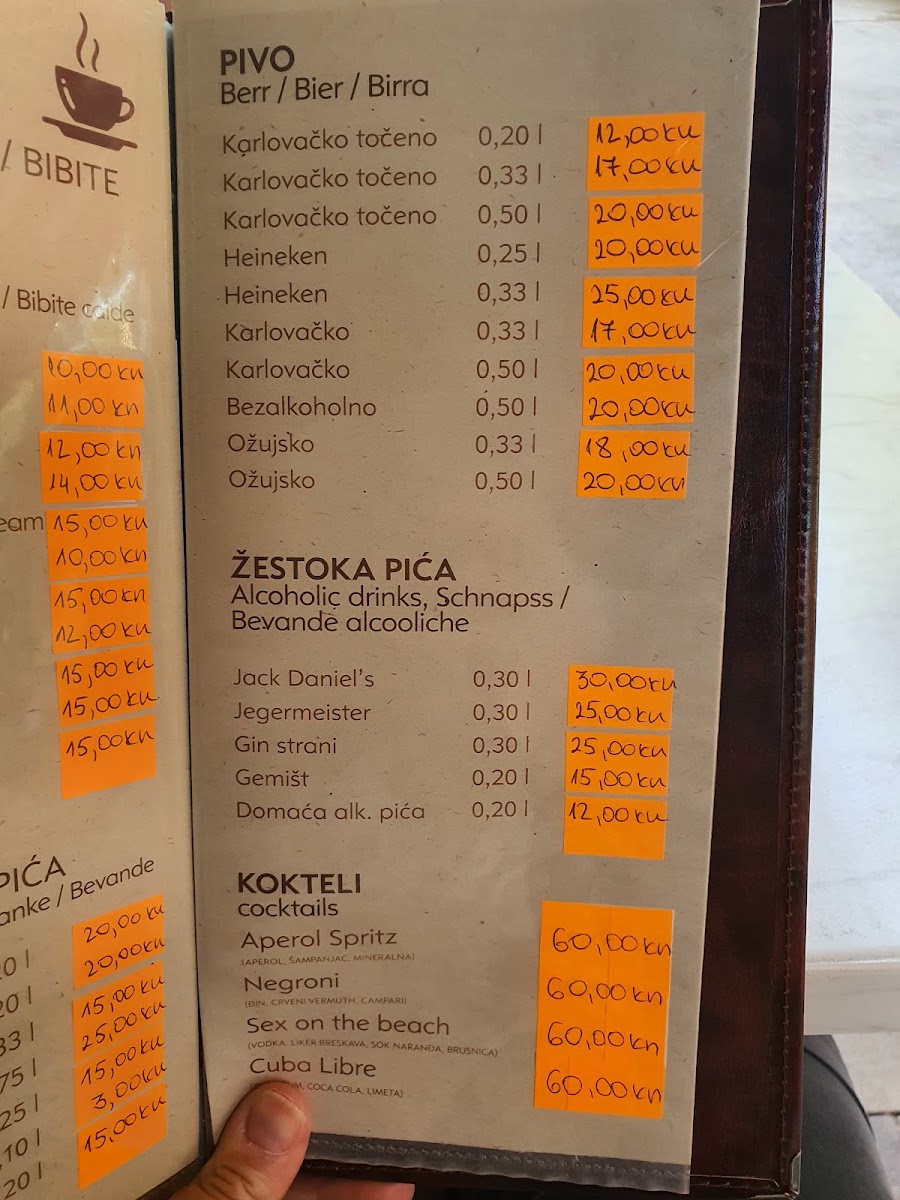 / BIBITE
/ Bibite calde
10,00 kn
11,00 kn
12,00 kn
14,00 kn
eam 15,00 kn
10,00 kn
15,00 kn
12,00 kn
15,00 kn
15,00 kn
15,00 kn
PIĆA
anke / Bevande
20,00 kn
20,00 kn
15,00 kn
25,00 kn
15,00 kn
3,00 kn
15,00 kn
20 l
33 l
75 l
25 l
,10 l
20 l
PIVO
Berr / Bier / Birra
Karlovačko točeno 0,20 l 12,00 kn
Karlovačko točeno 0,33 l 17,00 kn
Karlovačko točeno 0,50 l 20,00 kn
Heineken 0,25 l 20,00 kn
Heineken 0,33 l 25,00 kn
Karlovačko 0,33 l 17,00 kn
Karlovačko 0,50 l 20,00 kn
Bezalkoholno 0,50 l 20,00 kn
Ožujsko 0,33 l 18,00 kn
Ožujsko 0,50 l 20,00 kn
ŽESTOKA PIĆA
Alcoholic drinks, Schnapss /
Bevande alcooliche
Jack Daniel's 0,30 l 30,00 kn
Jegermeister 0,30 l 25,00 kn
Gin strani 0,30 l 25,00 kn
Gemišt 0,20 l 15,00 kn
Domaća alk. pića 0,20 l 12,00 kn
KOKTELI
cocktails
Aperol Spritz 60,00 kn
(APEROL, ŠAMPANJAC, MINERALNA)
Negroni 60,00 kn
(ĐIN, CRVENI VERMUTH, CAMPARI)
Sex on the beach 60,00 kn
(VODKA, LIKER BRESKAVA, SOK NARANĐA, BRUSNICA)
Cuba Libre 60,00 kn
COCA COLA, LIMETA)